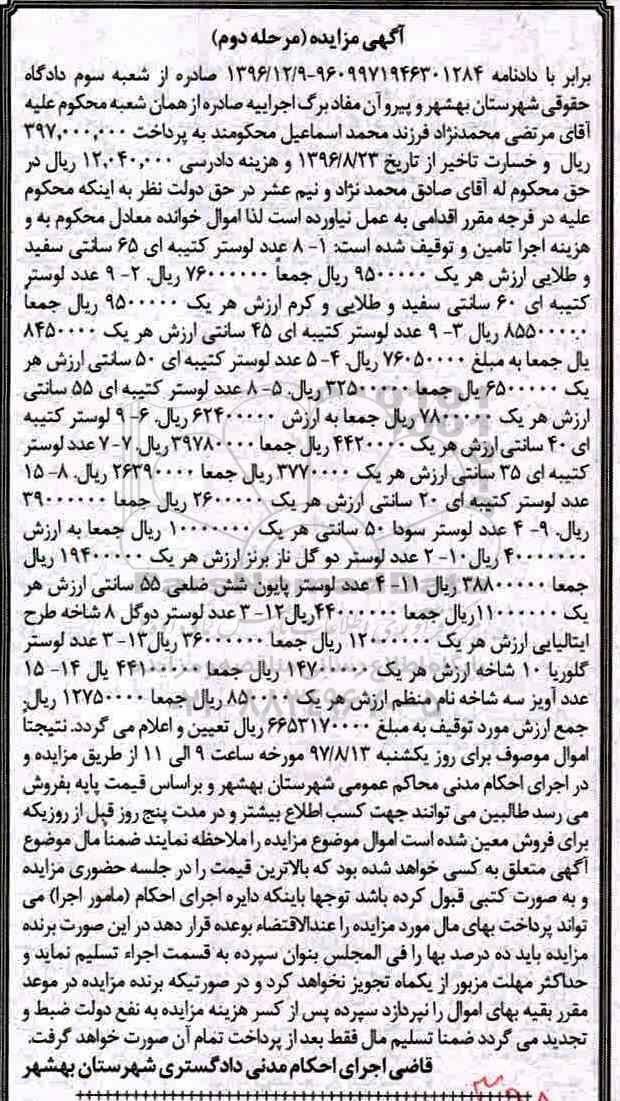 آگهی مزایده (مرحله دوم)
برابر با دادنامه ۹۶۰۹۹۷۱۹۴۶۳۰۱۲۸۴-۱۳۹۶/۱۲/۹ صادره از شعبه سوم دادگاه
حقوقی شهرستان بهشهر و پیرو آن مفاد برگ اجراییه صادره از همان شعبه محکوم علیه
آقای مرتضی محمدنژاد فرزند محمد اسماعیل محکومند به پرداخت ۳۹۷,۰۰۰,۰۰۰
ریال و خسارت تاخیر از تاریخ ۱۳۹۶/۸/۲۳ و هزینه دادرسی ۱۲,۰۴۰,۰۰۰ ریال در
حق محکوم له آقای صادق محمد نژاد و نیم عشر در حق دولت نظر به اینکه محکوم
علیه در فرجه مقرر اقدامی به عمل نیاورده است لذا اموال خوانده معادل محکوم به و
هزینه اجرا تامین و توقیف شده است: ۱- ۸ عدد لوستر کتیبه ای ۶۵ سانتی سفید
و طلایی ارزش هر یک ۹۵۰۰۰۰۰ ریال جمعاً ۷۶۰۰۰۰۰۰ ریال. ۲- ۹ عدد لوستر
کتیبه ای ۶۰ سانتی سفید و طلایی و کرم ارزش هر یک ۹۵۰۰۰۰۰ ریال جمعاً
۸۵۵۰۰۰۰۰ ریال ۳- ۹ عدد لوستر کتیبه ای ۴۵ سانتی ارزش هر یک ۸۴۵۰۰۰۰
یال جمعا به مبلغ ۷۶۰۵۰۰۰۰ ریال. ۴- ۵ عدد لوستر کتیبه ای ۵۰ سانتی ارزش هر
یک ۶۵۰۰۰۰۰ یال جمعا ۳۲۵۰۰۰۰۰ ریال. ۵- ۸ عدد لوستر کتیبه ای ۵۵ سانتی
ارزش هر یک ۷۸۰۰۰۰۰ ریال جمعا به ارزش ۶۲۴۰۰۰۰۰ ریال. ۶- ۹ لوستر کتیبه
ای ۴۰ سانتی ارزش هر یک ۴۴۲۰۰۰۰ ریال جمعا ۳۹۷۸۰۰۰۰ ریال. ۷- ۷ عدد لوستر
کتیبه ای ۳۵ سانتی ارزش هر یک ۳۷۷۰۰۰۰ ریال جمعا ۲۶۳۹۰۰۰۰ ریال. ۸- ۱۵
عدد لوستر کتیبه ای ۲۰ سانتی ارزش هر یک ۲۶۰۰۰۰۰ ریال جمعا ۳۹۰۰۰۰۰۰
ریال. ۹- ۴ عدد لوستر سودا ۵۰ سانتی هر یک ۱۰۰۰۰۰۰۰ ریال جمعا به ارزش
۴۰۰۰۰۰۰۰ ریال ۱۰- ۲ عدد لوستر دو گل ناز برنز ارزش هر یک ۱۹۴۰۰۰۰۰ ریال
جمعا ۳۸۸۰۰۰۰۰ ریال ۱۱- ۴ عدد لوستر پاپون شش ضلعی ۵۵ سانتی ارزش هر
یک ۱۱۰۰۰۰۰۰ ریال جمعا ۴۴۰۰۰۰۰۰ ریال ۱۲- ۳ عدد لوستر دوگل ۸ شاخه طرح
ایتالیایی ارزش هر یک ۱۲۰۰۰۰۰۰ ریال جمعا ۳۶۰۰۰۰۰۰ ریال ۱۳- ۳ عدد لوستر
گلوریا ۱۰ شاخه ارزش هر یک ۱۴۷۰۰۰۰۰ ریال جمعا ۴۴۱۰۰۰۰۰ یال ۱۴- ۱۵
عدد آویز سه شاخه نام منظم ارزش هر یک ۸۵۰۰۰۰ ریال جمعا ۱۲۷۵۰۰۰۰ ریال
جمع ارزش مورد توقیف به مبلغ ۶۶۵۳۱۷۰۰۰۰ ریال تعیین و اعلام می گردد. نتیجتاً
اموال موصوف برای روز یکشنبه ۹۷/۸/۱۳ مورخه ساعت ۹ الی ۱۱ از طریق مزایده و
در اجرای احکام مدنی محاکم عمومی شهرستان بهشهر و براساس قیمت پایه بفروش
می رسد طالبین می توانند جهت کسب اطلاع بیشتر و در مدت پنج روز قبل از روزیکه
برای فروش معین شده است اموال موضوع مزایده را ملاحظه نمایند ضمناً مال موضوع
آگهی متعلق به کسی خواهد شده بود که بالاترین قیمت را در جلسه حضوری مزایده
و به صورت کتبی قبول کرده باشد توجها باینکه دایره اجرای احکام (مامور اجرا) می
تواند پرداخت بهای مال مورد مزایده را عندالاقتضاء بوعده قرار دهد در این صورت برنده
مزایده باید ده درصد بها را فی المجلس بنوان سپرده به قسمت اجراء تسلیم نماید و
حداکثر مهلت مزبور از یکماه تجویز نخواهد کرد و در صورتیکه برنده مزایده در موعد
مقرر بقیه بهای اموال را نپردازد سپرده پس از کسر هزینه مزایده به نفع دولت ضبط و
تجدید می گردد ضمنا تسلیم مال فقط بعد از پرداخت تمام آن صورت خواهد گرفت.
قاضی اجرای احکام مدنی دادگستری شهرستان بهشهر